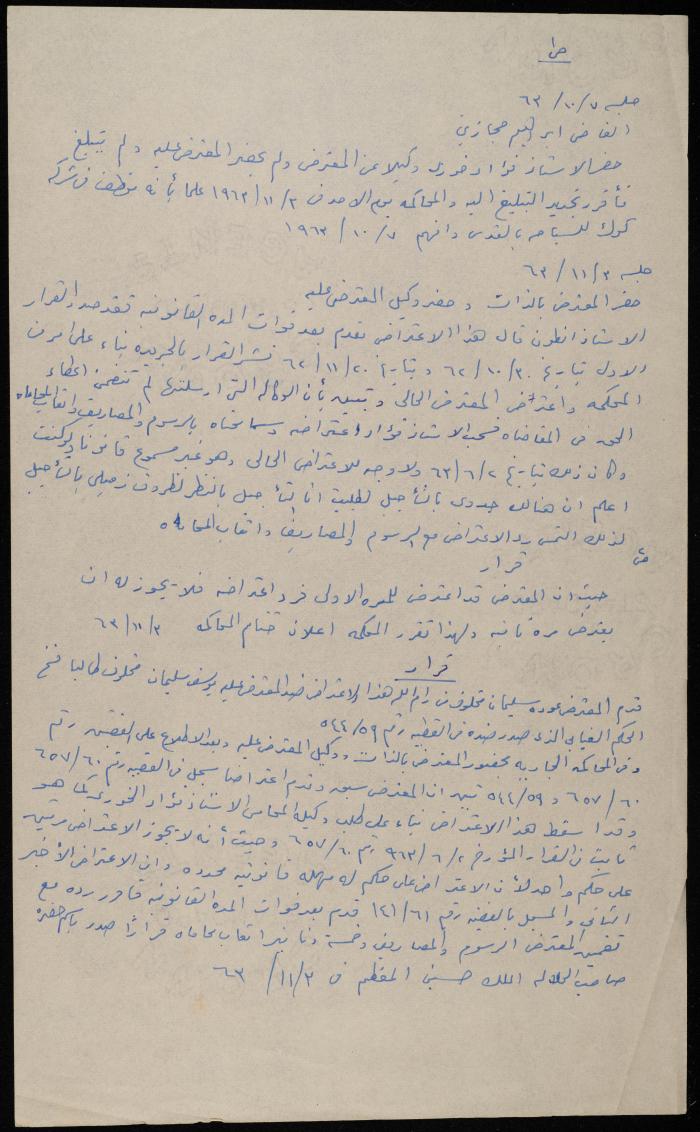 ص١
جلسه ٧/١٠/٦٣
القاضي ابراهيم حجازي
حضر الاستاذ فؤاد خوري وكيلا عن المعترض ولم يحضر المعترض عليه ولم يتبلغ
فأقرر تجديد التبليغ اليه والمحاكمه يوم الاحد في ٣/١١/١٩٦٣ علما بأنه موظف في شركة
كوك للسياحه بالقدس وافهم ٧/١٠/١٩٦٣
جلسه ٣/١١/٦٣
حضر المعترض بالذات وحضر وكيل المعترض عليه
الاستاذ انطون قال هذا الاعتراض تقدم بعد فوات المدة القانونيه فقد صدر القرار
الاول بتاريخ ٣٠/١٠/٦٢ وبتاريخ ٢٠/١١/٦٢ نشر القرار بالجريده بناء على امر من
المحكمه واعترض المعترض الحالي وتبين بأن الوكاله التي ارسلتها لم تتضمن اعطاء
الحق في المقاضاه فسحب الاستاذ فؤاد اعتراضه وسامحناه بالرسوم والمصاريف واتعاب المحاماه
وكان ذلك بتاريخ ٢/٦/٦٣ ولا وجه للاعتراض الحالي وهو غير مسموع قانونا ولو كنت
اعلم ان هنالك جدوى بالتأجيل لطلبت انا التأجيل بالنظر لظروف زميلي بالتأجيل
لذلك التمس رد الاعتراض مع الرسوم والمصاريف واتعاب المحاماه
قرار
حيث ان المعترض قد اعترض للمره الاولى فرد اعتراضه فلا يجوز له ان
يعترض مرة ثانيه ولهذا تقرر المحكمه اعلان ختام المحاكمه ٣/١١/٦٣
قرار
قدم المعترض عوده سليمان مخلوف من رام الله هذا الاعتراض ضد المعترض عليه يوسف سليمان مخلوف طالبا فسخ
الحكم الغيابي الذي صدر ضده في القضيه رقم ٥٤٤/٥٩
وفي المحاكمه الجاريه بحضور المعترض بالذات ووكيل المعترض عليه وبعد الاطلاع على القضيتين رقم
٦٥٧/٦٠ و ٥٤٤/٥٩ تبين ان المعترض سبق وقدم اعتراضا سجل في القضيه رقم ٦٥٧/٦٠
وقد اسقط هذا الاعتراض بناء على طلب وكيله المحامي الاستاذ فؤاد الخوري كما هو
ثابت في القرار المؤرخ ٢/٦/٩٦٣ رقم ٦٥٧/٦٠ وحيث أنه لا يجوز الاعتراض مرتين
على حكم واحد لأن الاعتراض على حكم له مهلة قانونيه محدده وان الاعتراض الأخير
الثاني والمسجل بالقضيه رقم ١٤١/٦١ قدم بعد فوات المدة القانونيه فأقرر رده مع
تضمين المعترض الرسوم والمصاريف وخمسة دنانير اتعاب محاماه قرارا صدر باسم حضرة
صاحب الجلاله الملك حسين المعظم في ٣/١١/٦٣